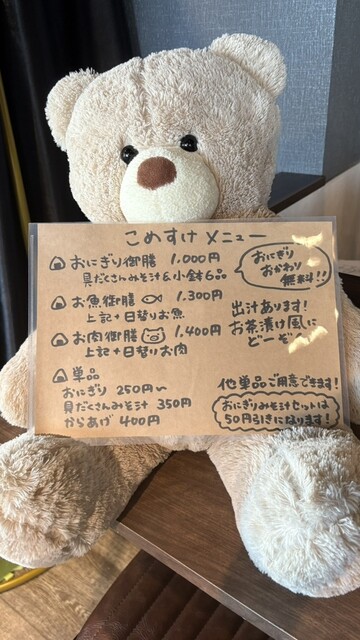 こめすけ メニュー
おにぎり御膳 1,000円
具だくさんみそ汁&小鉢6品
おにぎり
おかわり
無料!!
お魚御膳 1,300円
上記+日替りお魚
お肉御膳 1,400円
上記+日替りお肉
出汁あります!
お茶漬け風に
どーぞ
単品
おにぎり 250円~
具だくさんみそ汁 350円
からあげ 400円
他単品ご用意できます!
おにぎりみそ汁セットは
50円引きになります!